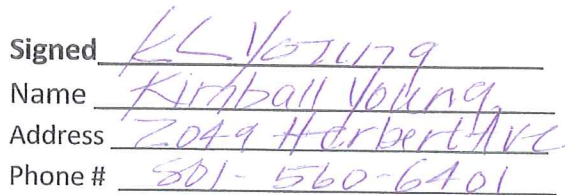 Signed KL Young
Name Kimball Young
Address 2049 Herbert Ave
Phone # 801-560-6401